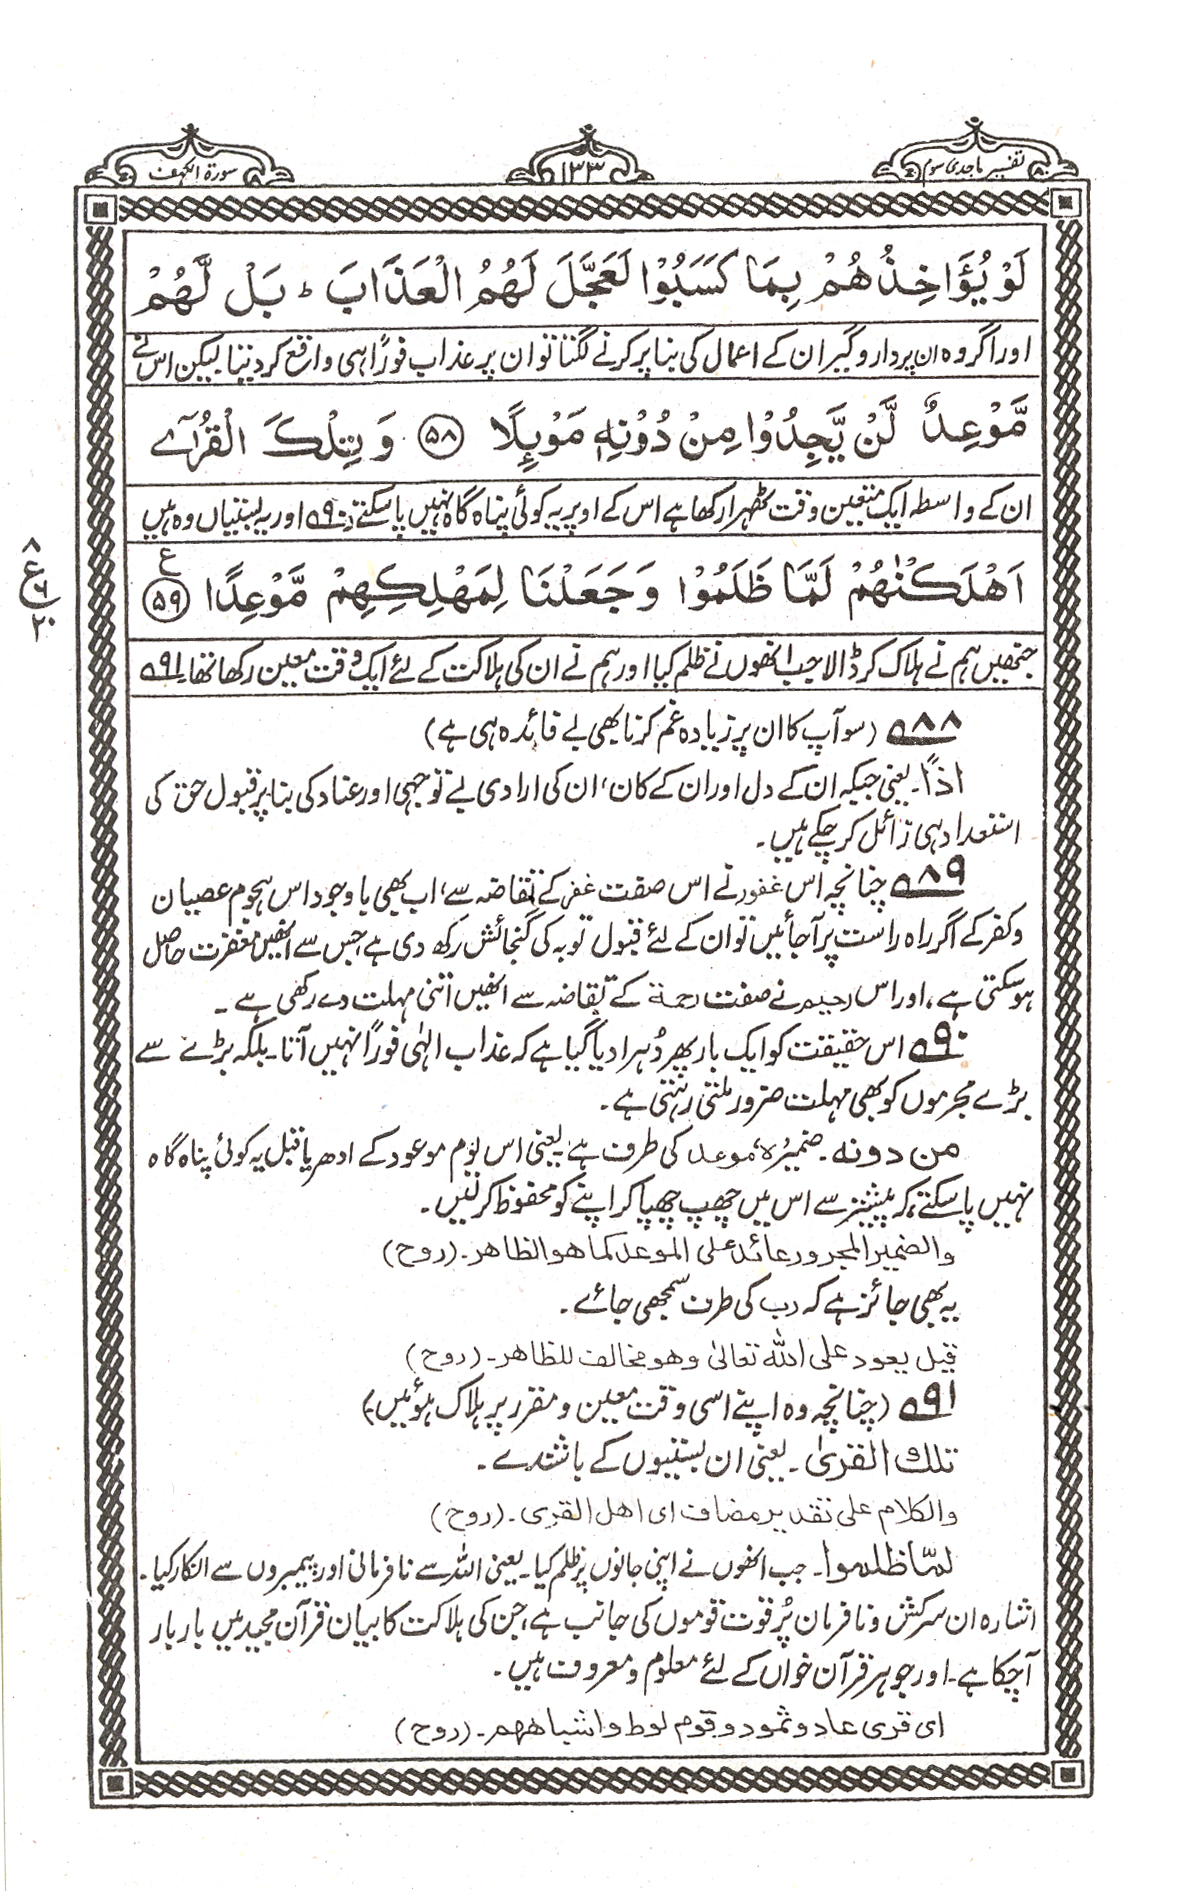 تفسیر ماجدی سوم
۱۳۳
سورۃ الکہف
لَوْ يُؤَاخِذُهُمْ بِمَا كَسَبُوْا لَعَجَّلَ لَهُمُ الْعَذَابَ ؕ بَلْ لَّهُمْ
اور اگر وہ ان پر دار و گیر ان کے اعمال کی بنا پر کرنے لگتا تو ان پر عذاب فوراً ہی واقع کر دیتا لیکن اس نے
مَّوْعِدٌ لَّنْ يَّجِدُوْا مِنْ دُوْنِهٖ مَوْئِلًا ﴿۵۸﴾ وَ تِلْكَ الْقُرٰٓى
ان کے واسطہ ایک متعین وقت ٹھہرا رکھا ہے اس کے اوپر یہ کوئی پناہ گاہ نہیں پا سکتے ۵۹۰ اور یہ بستیاں وہ ہیں
اَهْلَكْنٰهُمْ لَمَّا ظَلَمُوْا وَ جَعَلْنَا لِمَهْلِكِهِمْ مَّوْعِدًا ﴿۵۹﴾ ع
۸
ع
۶
۲۰
جنھیں ہم نے ہلاک کر ڈالا جب انھوں نے ظلم کیا اور ہم نے ان کی ہلاکت کے لئے ایک وقت معین رکھا تھا ۵۹۱
۵۸۸ (سو آپ کا ان پر زیادہ غم کرنا بھی بے فائدہ ہی ہے)
اذًا۔ یعنی جبکہ ان کے دل اور ان کے کان، ان کی ارادی بے توجہی اور عناد کی بنا پر قبول حق کی
استعداد ہی زائل کر چکے ہیں۔
۵۸۹ چنانچہ اس غفور نے اس صفت غفر کے تقاضہ سے، اب بھی با وجود اس ہجوم عصیان
و کفر کے اگر راہ راست پر آجائیں تو ان کے لئے قبول توبہ کی گنجائش رکھ دی ہے جس سے انھیں مغفرت حاصل
ہو سکتی ہے، اور اس رحیم نے صفت رحمة کے تقاضہ سے انھیں اتنی مہلت دے رکھی ہے۔
۵۹۰ اس حقیقت کو ایک بار پھر دُہرا دیا گیا ہے کہ عذاب الٰہی فوراً نہیں آتا۔ بلکہ بڑے سے
بڑے مجرموں کو بھی مہلت ضرور ملتی رہتی ہے۔
من دونہ۔ ضمیر ہ، موعد کی طرف ہے یعنی اس یوم موعود کے ادھر یا قبل یہ کوئی پناہ گاہ
نہیں پا سکتے، کہ پیشتر سے اس میں چھپ چھپا کر اپنے کو محفوظ کر لیں۔
والضمیر المجرور عائد علی الموعد کما هو الظاهر۔ (روح)
یہ بھی جائز ہے کہ رب کی طرف سمجھی جائے۔
قیل یعود علی اللہ تعالیٰ وهو مخالف للظاهر۔ (روح)
۵۹۱ (چنانچہ وہ اپنے اسی وقت معین و مقرر پر ہلاک ہوئیں)
تلك القریٰ۔ یعنی ان بستیوں کے باشندے۔
والکلام علی تقدیر مضاف ای اهل القری۔ (روح)
لمّا ظلموا۔ جب انھوں نے اپنی جانوں پر ظلم کیا۔ یعنی اللہ سے نافرمانی اور پیمبروں سے انکار کیا۔
اشارہ ان سرکش و نافرمان پُر قوت قوموں کی جانب ہے، جن کی ہلاکت کا بیان قرآن مجید میں بار بار
آچکا ہے۔ اور جو ہر قرآن خواں کے لئے معلوم و معروف ہیں۔
ای قری عاد و ثمود و قوم لوط و اشباههم۔ (روح)